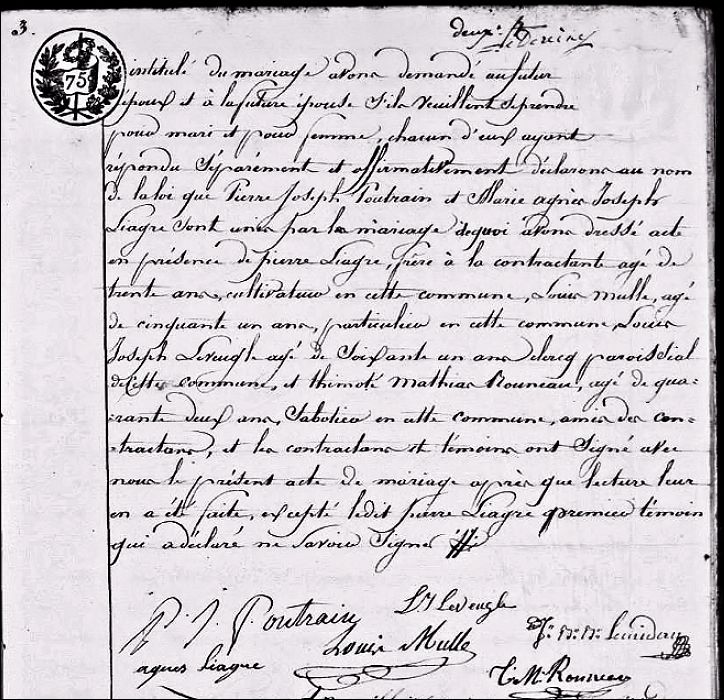 3.
deux.
75
intitulé du mariage avons demandé au futur
époux et à la future épouse s'ils veuillent se prendre
pour mari et pour femme, chacun d'eux ayant
répondu séparément et affirmativement déclarons au nom
de la loi que Pierre Joseph Poutrain et Marie agnès Joseph
Liagre sont unis par le mariage de quoi avons dressé acte
en présence de pierre Liagre, frère à la contractante agé de
trente ans, cultivateur en cette commune, Louis Mulle, agé
de cinquante un ans, particulier en cette commune, Louis
Joseph Leveugle agé de soixante un ans clercq paroissial
de cette commune, et thimoté Mathias Rouneau, agé de qua=
=rante deux ans, Sabotier en cette commune, amis des con=
=tractans, et les contractans et témoins ont signé avec
nous le présent acte de mariage après que lecture leur
en a été faite, excepté ledit pierre Liagre premier témoin
qui a déclaré ne savoir signer
P. J. Poutrain
LJ Leveugle
Louis Mulle
agnes liagre
T. M. Rouneau